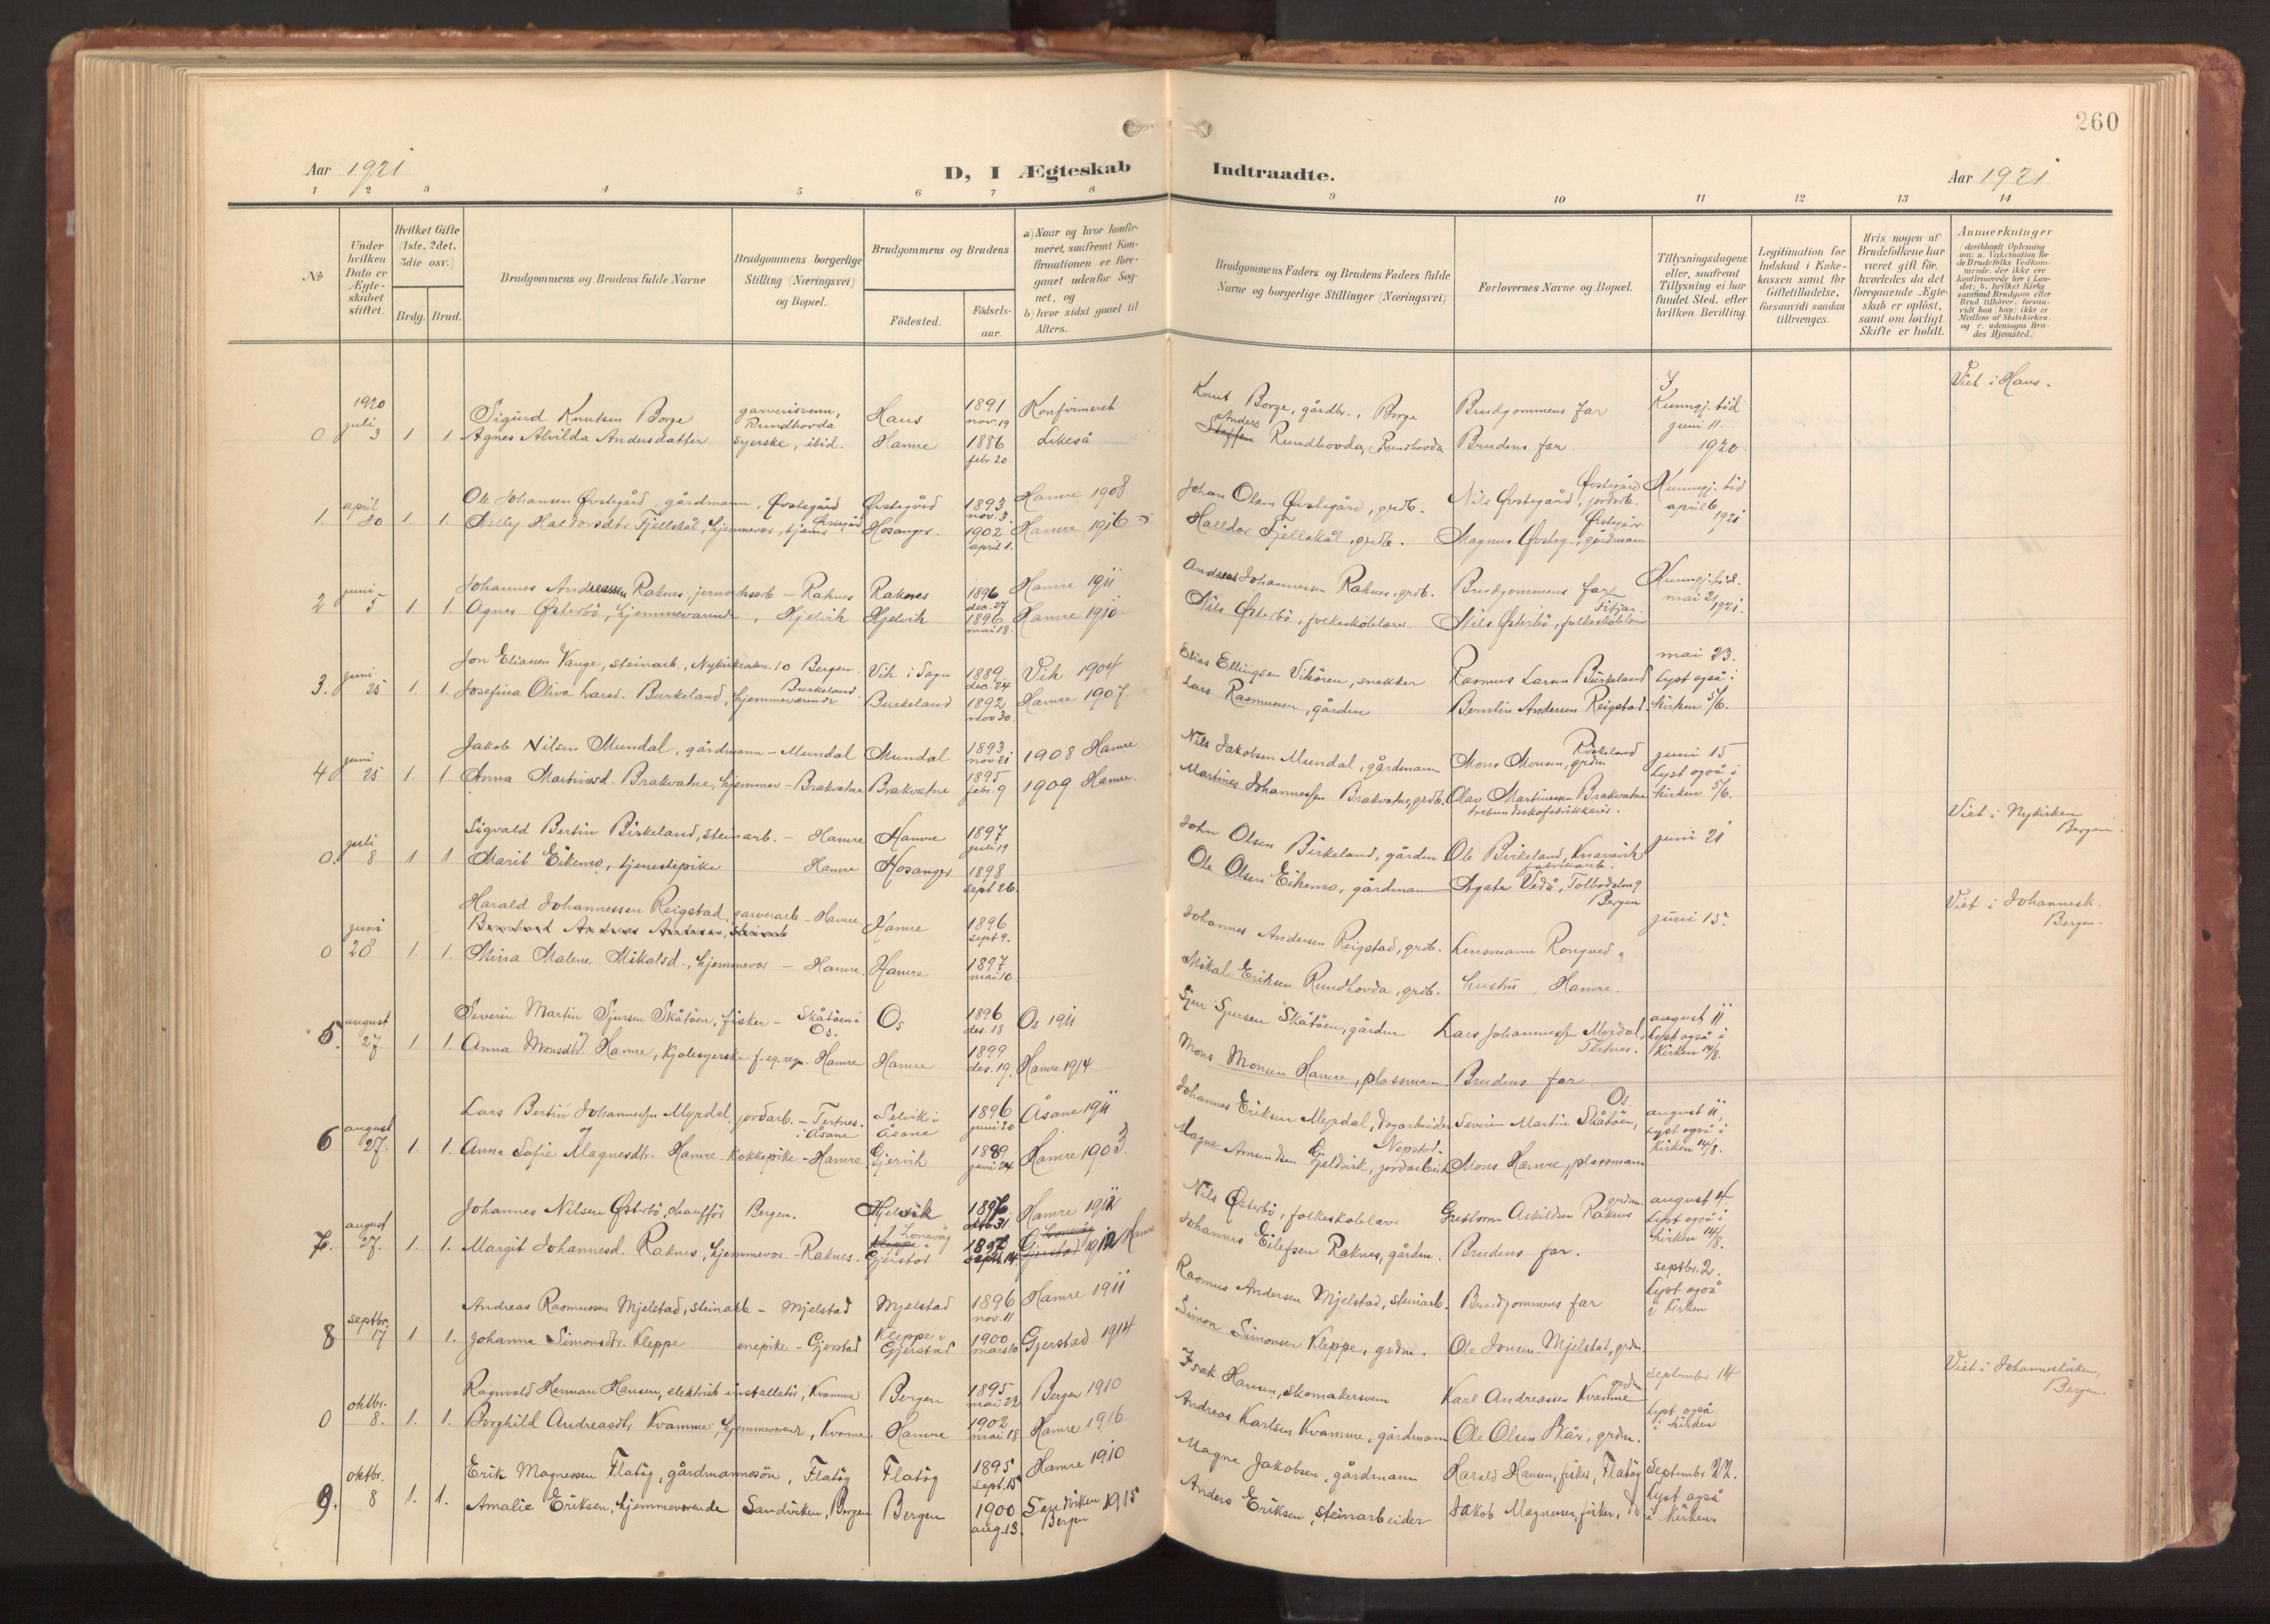 260
Aar 1921
D, I Ægteskab Indtraadte.
Aar 1921
1 2 3 4 5 6 7 8 9 10 11 12 13 14
No
Under hvilken Dato er Ægteskabet stiftet.
Hvilket Gifte (1ste, 2det, 3die osv.)
Brdg. Brud.
Brudgommens og Brudens fulde Navne
Brudgommens borgerlige Stilling (Næringsvei) og Bopæl.
Brudgommens og Brudens
Fødested.
Fødselsaar.
a) Naar og hvor konfirmeret, saafremt Konfirmationen er foregaaet udenfor Sognet, og
b) hvor sidst gaaet til Alters.
Brudgommens Faders og Brudens Faders fulde Navne og borgerlige Stillinger (Næringsvei)
Forlovernes Navne og Bopæl.
Tillysningsdagene eller, saafremt Tillysning ei har fundet Sted, efter hvilken Bevilling.
Legitimation for Indskud i Enkekassen samt for Giftetilladelse, forsaavidt saadan tiltrænges.
Hvis nogen af Brudefolkene har været gift før, hvorledes da det foregaaende Ægteskab er opløst, samt om lovligt Skifte er holdt.
Anmerkninger (deriblandt Oplysning om: a. Vakcination for de Brudefolks Vedkommende, der ikke ere konfirmerede her i Landet; b. hvilket Kirkesamfund Brudgom eller Brud tilhører, forsaavidt han (hun) ikke er Medlem af Statskirken, og c. udensogns Brudes Hjemsted.)
1920 juli 3
0 1 1. Sigurd Knutsen Borge garverisvenn, Rundhovda Haus 1891 nov. 19 Konfirmeret Knut Borge, gårdbr., Borge Brudgommens far Kunngj. tid juni 11. 1920. Viet i Haus.
Agnes Alvilda Andersdatter syerske, ibid. Hamre 1886 febr. 20 Likeså Anders Rundhovda, Rundhovda Brudens far
1. april 30 1 1. Ole Johansen Øvstegård, gårdmann, Øvstegård Øvstegård 1893 nov. 3 Hamre 1908 Johan Olsen Øvstegård, grdb. Nils Øvstegård, jordarb. Øvstegård Kunngj. tid april 6 1921
Halldorsdtr Fjellskål, hjemmevær., Hosanger. 1902 april 1. Hamre 1916 Halldor Fjellskål, grdb. Magnus Øvsteg., gårdmann
2 juni 5 1. 1. Johannes Andreassen Raknes, Raknes Raknes 1896 dec. 27 Hamre 1911 Andreas Johannessen Raknes, grdb. Brudgommens far Kunngj. tid. mai 21 1921.
Agnes Østerbö, hjemmeværende, Hjelvik Hjelvik 1896 mai 18 Hamre 1910 Nils Østerbö, folkeskolelærer Nils Østerbö, folkeskolelærer
3. juni 25 1. 1. Jon Eliassen Vange, steinarb., Bergen. Vik i Sogn 1889 dec. 24 Vik 1904 Elias Ellingsen Vikören, snekker Rasmus Larsen Burkeland mai 23. Lyst også i kirken 5/6.
Josefina Oliva Larsd. Burkeland, hjemmeværende Burkeland Burkeland 1892 nov 30 Hamre 1907. Lars Rasmussen, gårdm Berntin Andersen Reigstad
4 juni 25 1. 1. Jakob Nilsen Mundal, gårdmann - Mundal Mundal 1893 nov 21 1908 Hamre Nils Jakobsen Mundal, gårdmann Mons Monsen, grdm juni 15 Lyst også i kirken 5/6.
Anna Martinusd. Brakvatne, hjemmev - Brakvatne Brakvatne 1895 febr. 9 1909 Hamre. Martines Johannessen Brakvatne, grdb. Olav Martinussen Brakvatne
0. juli 8 1 1 Sigvald Bertin Birkeland, steinarb. - Hamre Hamre 1897 juli 19 John Olsen Birkeland, gårdm Ole Birkeland, Knarvik juni 21 Viet i Nykirken Bergen.
Marit Eikemo, tjenestepike Hamre Hosanger 1898 sept 26 Ole Olsen Eikemo, gårdmann Agate Vedå, Bergen
0 juni 28 1. 1. Harald Johannessen Reigstad, garverarb - Hamre Hamre 1896 sept 9. Johannes Andersen Reigstad, grdb. Lensmann Rongved juni 15. Viet i Johannesk. Bergen.
Mina Malene Mikalsd., hjemmevær - Hamre. Hamre 1897 mai 10 Mikal Eriksen Rundhovda, grdb. hustru, Hamre.
5. august 27. 1 1. Severin Martin Sjursen Skåtöen, fisker - Skåtöen i Os. Os 1896 des. 18 Os 1911 Sjur Sjursen Skåtöen, gårdm Lars Johannessen Myrdal, Tertnes. august 11 Lyst også i Kirken 14/8.
Anna Monsdtr Hamre, kjolesyerske f. eg. regn. Hamre Hamre 1899 des. 19. Hamre 1914 Mons Monsen Hamre, plassmann Brudens far
6 august 27. 1. 1. Lars Bertin Johannessen Myrdal, jordarb. - Tertnes i Åsane Selvik i Åsane 1896 juni 20 Åsane 1911 Johannes Eriksen Myrdal, dagarbeider Severin Martin Skåtöen, Os. august 11, Lyst også i Kirken 14/8.
Anna Sofie Magnesdtr. Hamre kokkepike - Hamre Gjervik 1889 juni 24 Hamre 1903. Magne Amundsen Gjeldvik, jordarbeid. Mons Hamre, plassmann
7. august 27. 1. 1. Johannes Nilsen Østerbö, chauffør Bergen. Hjelvik oktbr. 31. Hamre 1912 Nils Østerbö, folkeskolelærer Askildsen Raknes grdm. august 4 Lyst også i kirken 14/8.
Margit Johannesd. Raknes, hjemmevær. - Raknes. Gjerstad Hamre Johannes Eilefsen Raknes, gårdm. Brudens far.
8 septbr. 17 1 1. Andreas Rasmussen Mjelstad, steinarb - Mjelstad Mjelstad 1896 nov. 11 Hamre 1911 Rasmus Andersen Mjelstad, steinarb. Brudgommens far septbr. 2. Lyst også i Kirken
Johanna Simonsdtr. Kleppe enepike - Gjerstad Kleppe i Gjerstad 1900 mars 10 Gjerstad 1914 Simon Simonsen Kleppe, grdm. Ole Jonsen Mjelstad, grdm
0 oktbr. 8. 1. 1. Ragnvald Herman Hansen, elektrisk installatör, Kvamme Bergen 1895 mai 22 Bergen 1910 Isak Hansen, skomakersvenn Karl Andreassen Kvamme grdm September 14 Lyst også i kirken Viet i Johanneskirken, Bergen.
Borghild Andreasdtr. Kvamme, hjemmeværende, Kvamme. Hamre 1902 mai 18 Hamre 1916 Andreas Karlsen Kvamme, gårdmann Ole Olsen Skår, grdm.
9. oktbr. 8 1. 1. Erik Magnessen Flatöy, gårdmannssön, Flatöy Flatöy 1895 sept. 15 Hamre 1910 Magne Jakobsen, gårdmann Harald Hansen, fisker, Flatöy September 22. Lyst også i Kirken.
Amalie Eriksen, hjemmeværende Sandviken, Bergen Bergen 1900 aug. 13. Sandviken 1915 Bergen Anders Eriksen, steinarbeider Jakob Magnessen, fisker, do